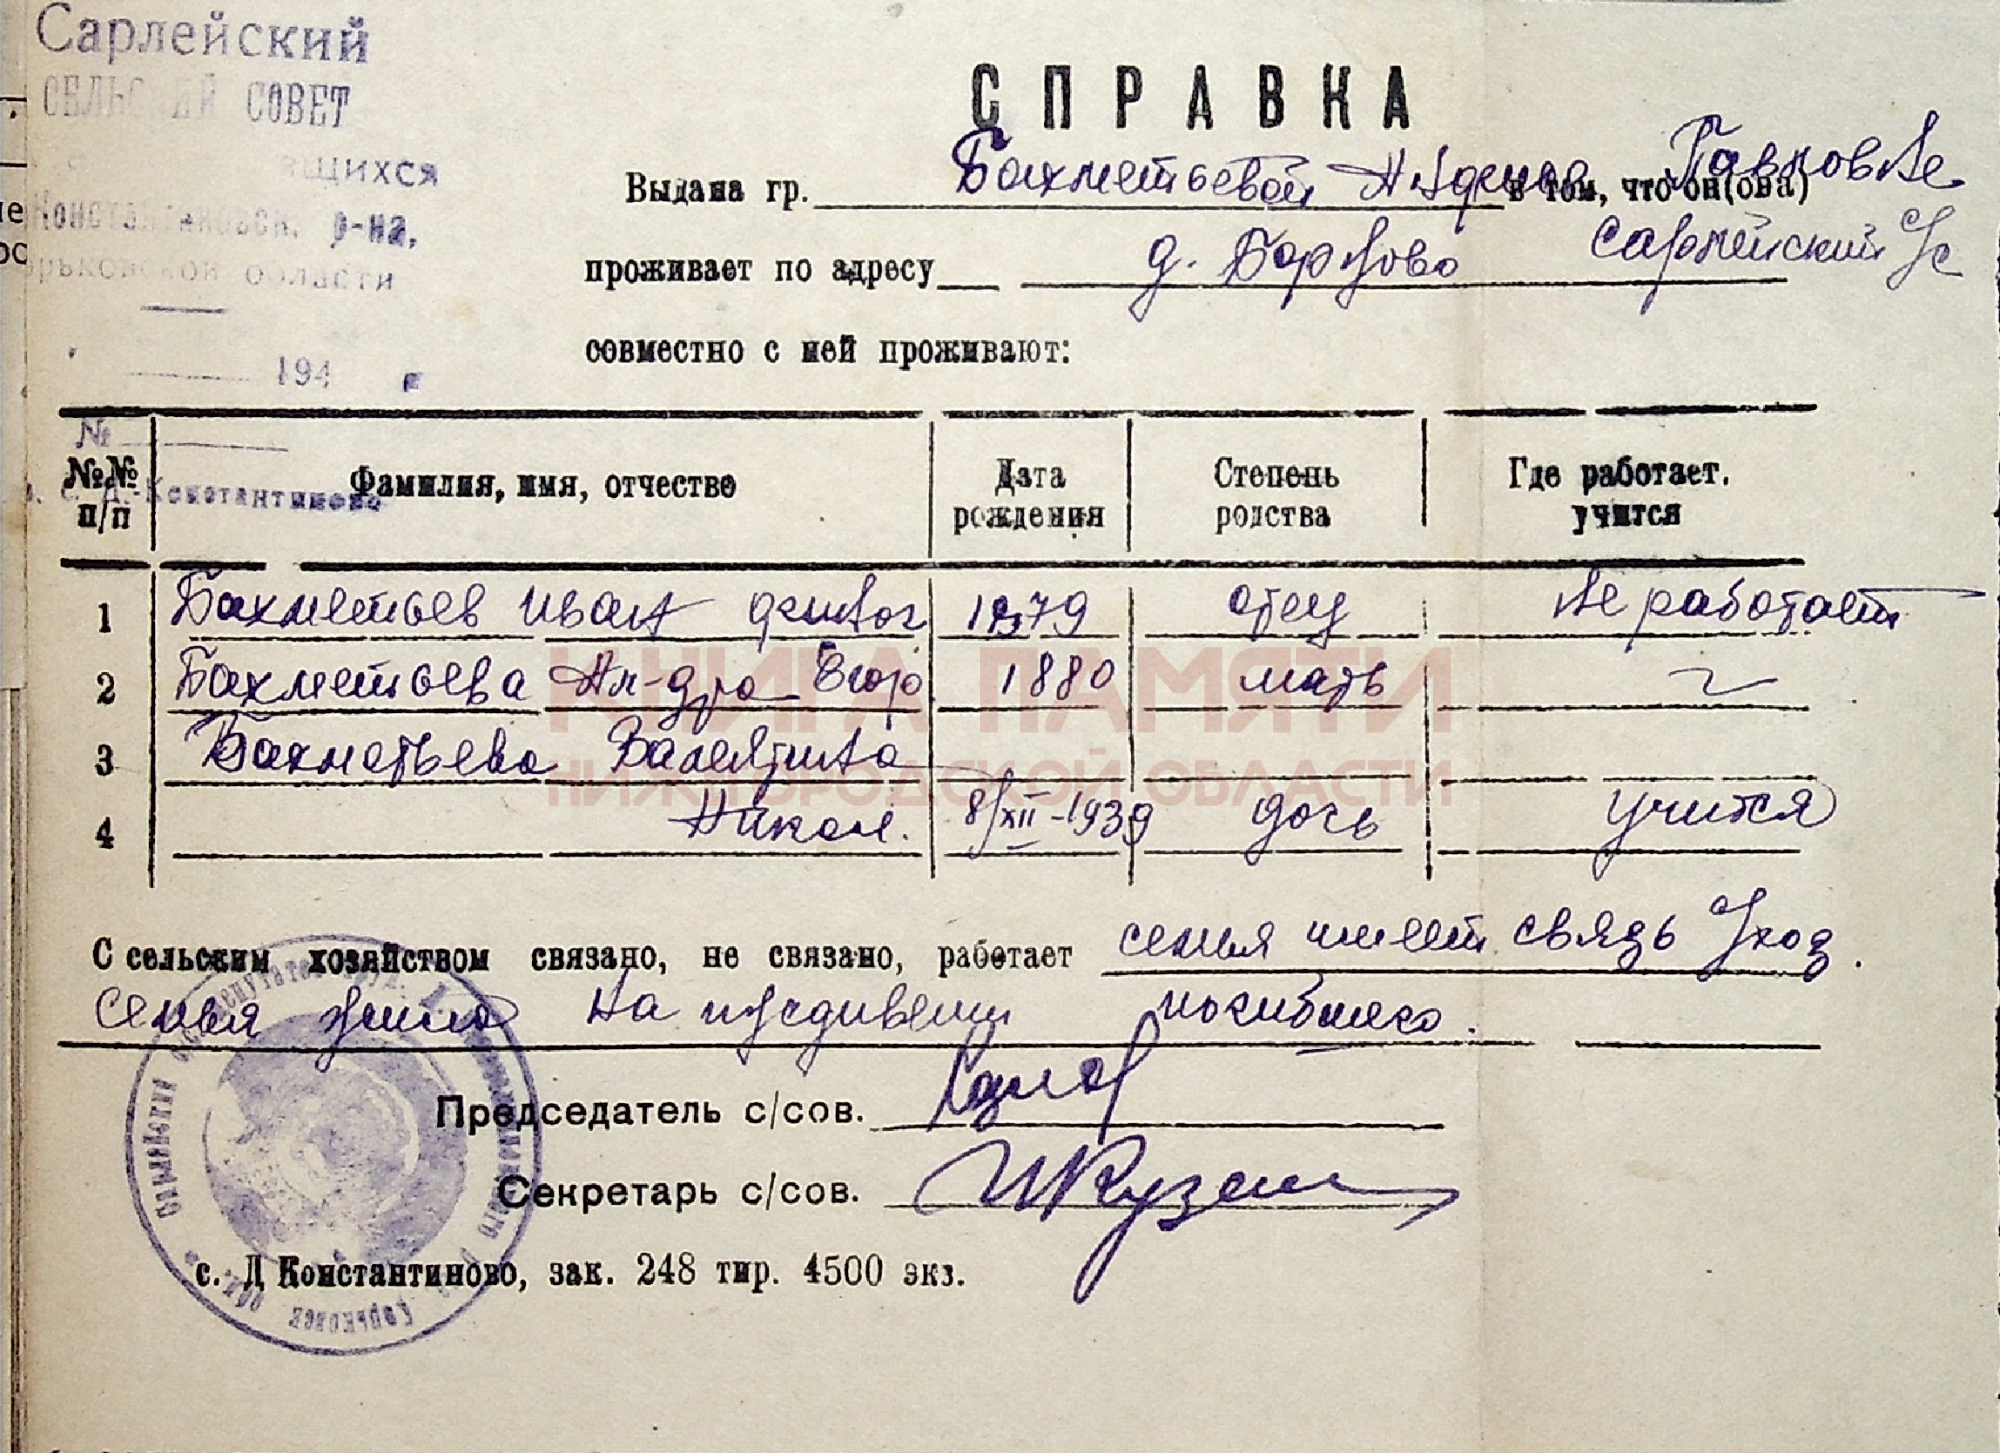 Сарлейский
СЕЛЬСКИЙ СОВЕТ
ящихся
Константиновск. р-на,
Горьковской области
194 г
№
с. Д.-Константиново
СПРАВКА
Выдана гр. Бахметьевой Павловне в том, что он(ова)
проживает по адресу д. Борзово Сарлейский с/с
совместно с ней проживают:
№№ п/п Фамилия, имя, отчество Дата рождения Степень родства Где работает. учится
1 Бахметьев Иван 1879 отец не работает
2 Бахметьева Ал-дра Егор 1880 мать
3 Бахметьева Валентина
4 Никол. 8/XII-1939 дочь учится
КНИГА ПАМЯТИ
НИЖЕГОРОДСКОЙ ОБЛАСТИ
С сельским хозяйством связано, не связано, работает семья имеет связь
Семья жила на иждивении погибшего.
Председатель с/сов.
Секретарь с/сов. И Кузе
с. Д Константиново, зак. 248 тир. 4500 экз.